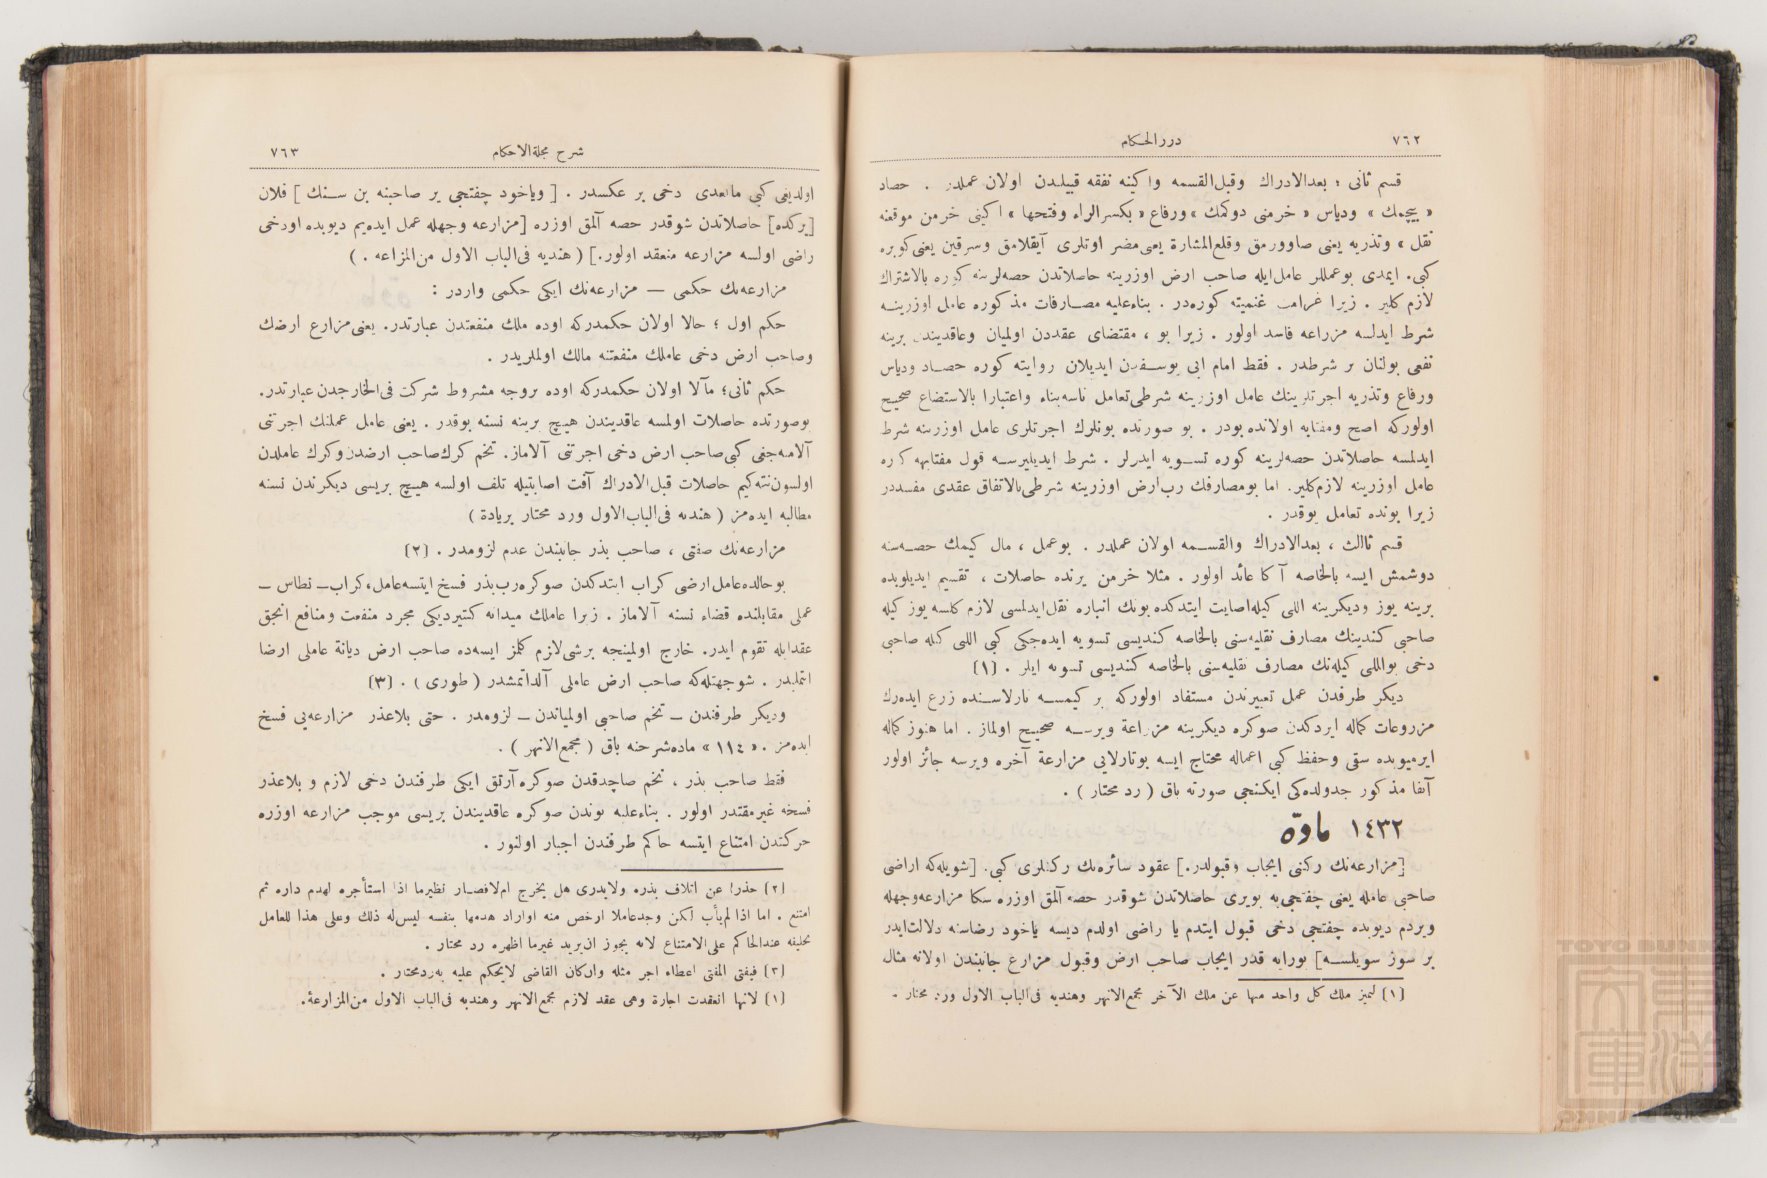 ٧٦٢
دررالحكام
قسم ثانی ؛ بعدالادراك وقبل‌القسمه واكینه نفقه قبیلندن اولان عملدر . حصاد
« بیچمك » ودیاس « خرمنی دوكمك » ورفاع « بكسرالراء وفتحها » اكینی خرمن موقعنه
نقل » وتذریه یعنی صاوورمق وقلع‌المشارة یعنی مضر اوتلری آیقلامق وسرقین یعنی كوبره
كبی. ایمدی بوعمللر عامل‌ایله صاحب ارض اوزرینه حاصلاتدن حصه‌لرینه كوره بالاشتراك
لازم كلیر . زیرا غرامت غنمیته كوره‌در . بناءعلیه مصـارفات مذكوره عامل اوزرینـه
شرط ایدلسه مزراعه فاسد اولور . زیرا بو ، مقتضای عقددن اولمیان وعاقدیندن برینه
نفعی بولنان بر شرطدر . فقط امام ابی یوسـفدن ایدیلان روایته كوره حصـاد ودیاس
ورفاع وتذریه اجرتلرینك عامل اوزرینه شرطی‌تعامل ناسه‌بناء واعتبارا بالاستصناع صحیح
اولوركه اصح ومفتابه اولانده‌بودر . بو صورتده بونلرك اجرتلری عامل اوزرینه شرط
ایدلمسه حاصلاتدن حصه‌لرینه كوره تسـویه ایدرلر . شرط ایدیلیرسـه قول مفتابهه كوره
عامل اوزرینه لازم‌كلیر. اما بومصارفك رب‌ارض اوزرینه شرطی‌بالاتفاق عقدی مفسددر
زیرا بونده تعامل یوقدر .
قسم ثالث ، بعدالادراك والقسـمه اولان عملدر . بوعمل ، مال كیمك حصـه‌سنه
دوشمش ایسه بالخاصه آكا عائد اولور . مثلا خرمن یرنده حاصلات ، تقسیم ایدیلوبده
برینه یوز ودیكرینه اللی كیله‌اصابت ایتدكده بونك انباره نقل‌ایدلمسی لازم كلسه یوز كیله
صاحبی كندینك مصارف نقلیه‌سنی بالخاصه كندیسی تسویه ایده‌جكی كبی اللی كیله صاحبی
دخی بواللی كیله‌نك مصارف نقلیه‌سنی بالخاصه كندیسی تسویه ایلر . [١]
دیكر طرفدن عمل تعبیرندن مستفاد اولوركه بر كیمسـه تارلاسـنده زرع ایده‌رك
مزروعات كماله ایردكدن صوكره دیكرینه مزراعة ویرسـه صحیح اولماز . اما هنوز كماله
ایرمیوبده سقی وحفظ كبی اعماله محتاج ایسه بوتارلایی مزارعة آخره ویرسه جائز اولور
آنفا مذكور جدولده‌كی ایكنجی صورته باق ( رد محتار ) .
١٤٣٢ ماده
[مزارعه‌نك ركنی ایجاب وقبولدر.] عقود سائره‌نك ركنلری كبی. [شویله‌كه اراضی
صاحبی عامله یعنی چفتجی‌یه بویری حاصلاتدن شوقدر حصه آلمق اوزره سكا مزارعه‌وجهله
ویردم دیوبده چفتجی دخی قبول ایتدم یا راضی اولدم دیسه یاخود رضاسنه دلالت‌ایدر
بر سوز سویلسـه] بورایه قدر ایجاب صاحب ارض وقبول مزارع جانبندن اولانه مثال
[١] لتمیز ملك كل واحد منها عن ملك الآخر مجمع‌الانهر وهندیه فی‌الباب الاول ورد محتار .
شرح مجلةالاحكام
٧٦٣
اولدیغی كبی مابعدی دخی بر عكسدر . [ ویاخود چفتجی یر صاحبنه بن سـنك ] فلان
[یركده] حاصلاتدن شوقدر حصه آلمق اوزره [مزارعه وجهله عمل ایده‌یم دیوبده اودخی
راضی اولسه مزارعه منعقد اولور.] ( هندیه فی‌الباب الاول من‌المزاعه . )
مزارعه‌نك حكمی — مزارعه‌نك ایكی حكمی واردر :
حكم اول ؛ حالا اولان حكمدركه اوده ملك منفعتدن عبارتدر. یعنی‌مزارع ارضك
وصاحب ارض دخی عاملك منفعتنه مالك اولملریدر .
حكم ثانی؛ مآلا اولان حكمدركه اوده بروجه مشروط شركت فی‌الخارجدن عبارتدر.
بوصورتده حاصلات اولمسه عاقدیندن هیـچ برینه نسنه یوقدر . یعنی عامل عملنك اجرتنی
آلامیه‌جغی كبی‌صاحب ارض دخی اجرتنی آلاماز. تخم كرك‌صاحب ارضدن‌وكرك عاملدن
اولسون‌نته‌كیم حاصلات قبل‌الادراك آفت اصابتیله تلف اولسه هیـچ بریسی دیكرندن نسنه
مطالبه ایده‌مز ( هندیه فی‌الباب‌الاول ورد محتار بریادة )
مزارعه‌نك صفتی ، صاحب بذر جانبندن عدم لزومدر . [٢]
بوحالده‌عامل‌ارضی كراب ایتدكدن صوكره‌رب‌بذر فسخ ایتسه‌عامل،كراب‌ـ نطاس ـ
عملی مقابلنده قضاء نسنه آلاماز . زیرا عاملك میدانه كتیردیكی مجرد منفعت ومنافع انجق
عقدایله تقوم ایدر. خارج اولمینجه برشی‌لازم كلمز ایسه‌ده صاحب ارض دیانة عاملی ارضا
ایتملیدر . شوجهتله‌كه صاحب ارض عاملی آلداتمشدر ( طوری ) . [٣]
ودیكر طرفندن ـ تخم صاحبی اولمیاندن ـ لزومدر . حتی بلاعذر مزارعه‌یی فسخ
ایده‌مز . « ١١٤ » ماده‌شرحنه باق ( مجمع‌الانهر ) .
فقط صاحب بذر ، تخم صاچدقدن صوكره‌آرتق ایكی طرفندن دخی لازم و بلاعذر
فسخه غیرمقتدر اولور . بناءعلیه بوندن صوكره عاقدیندن بریسی موجب مزارعه اوزره
حركتدن امتناع ایتسه حاكم طرفندن اجبار اولنور .
[٢] حذرا عن اتلاف بذره ولایدری هل یخرج ام‌لافصـار نظیرما اذا استأجره لهدم داره ثم
امتنع . اما اذا لم‌یأب لكن وجدعاملا ارخص منه اواراد هدمها بنفسه لیس‌له ذلك وعلی هذا للعامل
تحلیفه عندالحاكم علی‌الامتناع لانه یجوز ان‌یرید غیرما اظهره رد محتار .
[٣] فیفتی المفتی اعطاء اجر مثله وان‌كان القاضی لایحكم علیه به‌ردمختار .
[١] لانها انعقدت اجارة وهی عقد لازم مجمع‌الانهر وهندیه فی‌الباب الاول من‌المزارعة.
TOYO BUNKO